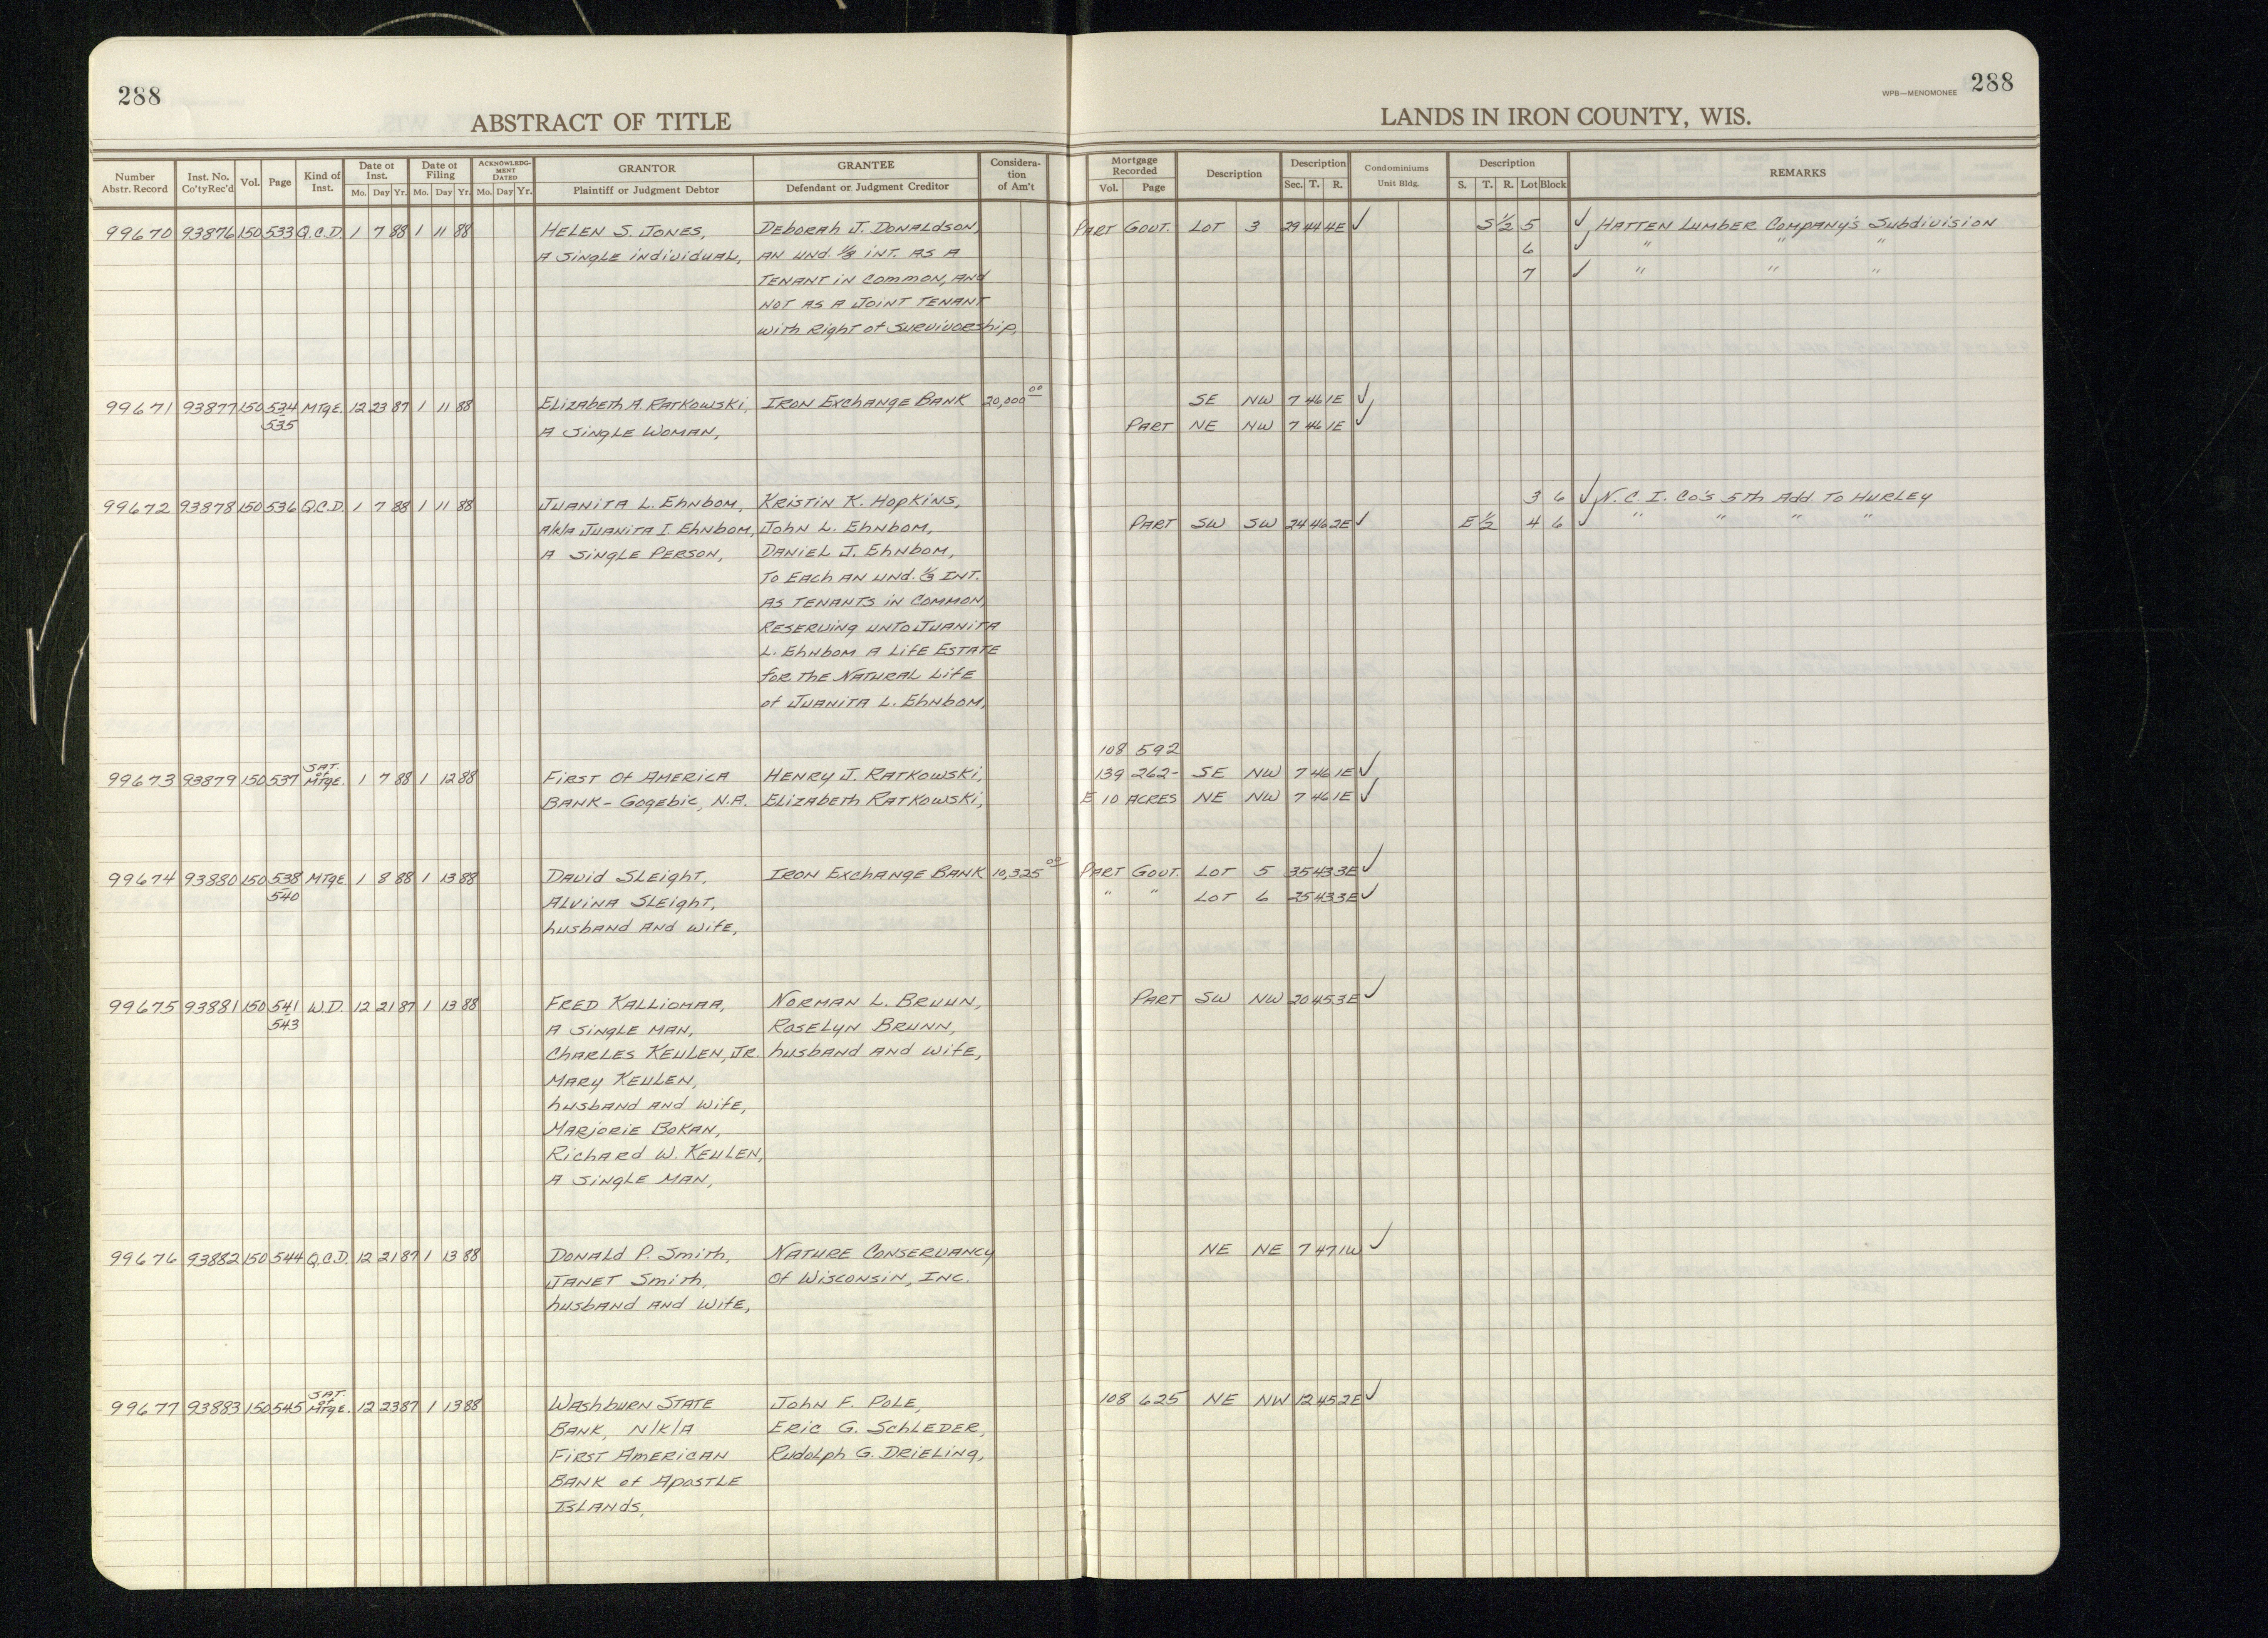 288
288
WPB—MENOMONEE
ABSTRACT OF TITLE
LANDS IN IRON COUNTY, WIS.
Number Abstr. Record | Inst. No. Co'ty Rec'd | Vol. | Page | Kind of Inst. | Date of Inst. Mo. Day Yr. | Date of Filing Mo. Day Yr. | ACKNOWLEDGMENT DATED Mo. Day Yr. | GRANTOR Plaintiff or Judgment Debtor | GRANTEE Defendant or Judgment Creditor | Consideration of Am't | Mortgage Recorded Vol. Page | Description | Description Sec. T. R. | Condominiums Unit Bldg. | Description S. T. R. Lot Block | REMARKS
99670 93876 150 533 Q.C.D. 1 7 88 1 11 88 HELEN S. JONES, Deborah J. Donaldson, PART GOVT. LOT 3 29 44 4E ✓ S 1/2 5 ✓ HATTEN LUMBER COMPANY'S Subdivision
A Single individual, AN UND. 1/3 INT. AS A 6 ✓ " " "
TENANT IN COMMON, AND 7 ✓ " " "
NOT AS A JOINT TENANT
with Right of Survivorship,
99671 93877 150 534 MTGE. 12 23 87 1 11 88 Elizabeth A. Ratkowski, IRON EXCHANGE BANK 20,000 00 SE NW 7 46 1E ✓
535 A Single Woman, PART NE NW 7 46 1E ✓
99672 93878 150 536 Q.C.D. 1 7 88 1 11 88 JUANITA L. Ehnbom, KRISTIN K. Hopkins, 3 6 ✓ N.C.I. Co's 5th Add. To HURLEY
A/k/a JUANITA I. Ehnbom, John L. Ehnbom, PART SW SW 24 46 2E ✓ E 1/2 4 6 ✓ " " " "
A Single PERSON, DANIEL J. Ehnbom,
To EACH AN UND. 1/3 INT.
AS TENANTS IN COMMON,
RESERVING UNTO JUANITA
L. Ehnbom A LIFE ESTATE
for THE NATURAL LIFE
of JUANITA L. Ehnbom,
108 592
99673 93879 150 537 SAT. of MTGE. 1 7 88 1 12 88 FIRST Of AMERICA HENRY J. RATKOWSKI, 139 262- SE NW 7 46 1E ✓
BANK - Gogebic, N.A. Elizabeth RATKOWSKI, E 10 ACRES NE NW 7 46 1E ✓
99674 93880 150 538 MTGE 1 8 88 1 13 88 David SLEIGHT, IRON EXCHANGE BANK 10,325 00 PART GOVT. LOT 5 35 43 3E ✓
540 ALVINA SLEIGHT, " " LOT 6 25 43 3E ✓
husband AND wife,
99675 93881 150 541 W.D. 12 21 87 1 13 88 FRED KALLIOMAA, NORMAN L. BRUNN, PART SW NW 20 45 3E ✓
543 A Single MAN, ROSELYN BRUNN,
CHARLES KEULEN, JR. husband AND wife,
MARY KEULEN,
husband AND wife,
MARJORIE BOKAN,
Richard W. KEULEN,
A Single MAN,
99676 93882 150 544 Q.C.D. 12 21 87 1 13 88 DONALD P. Smith, NATURE CONSERVANCY NE NE 7 47 1W ✓
JANET Smith, Of Wisconsin, INC.
husband AND wife,
99677 93883 150 545 SAT. of MTGE. 12 23 87 1 13 88 WAShburn STATE John F. POLE, 108 625 NE NW 12 45 2E ✓
BANK, N/K/A ERIC G. SchLEDER,
FIRST AMERICAN Rudolph G. DRIELING,
BANK of APOSTLE
ISLANDS,